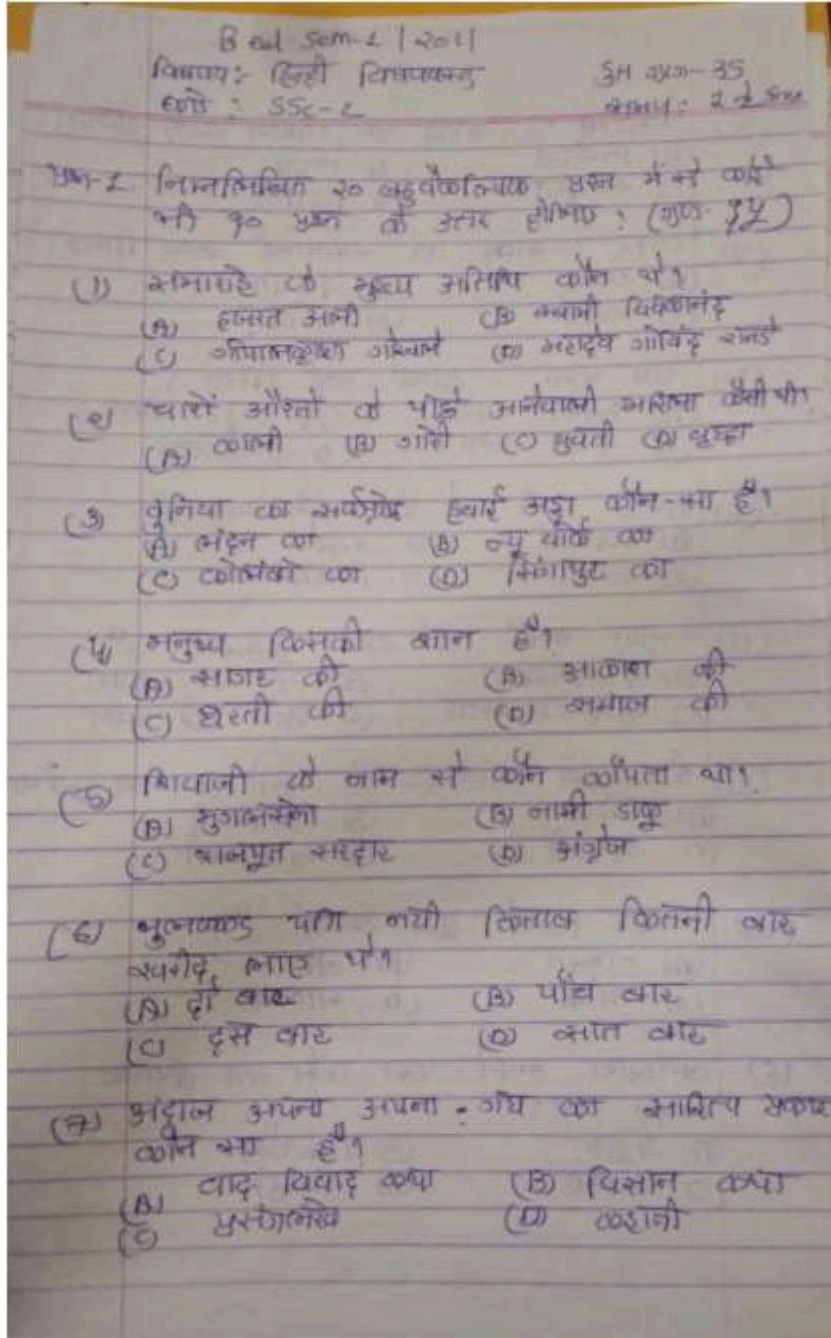 B ed Sem-2 / 2021
विषय :- हिन्दी विषयवस्तु
कुल गुण-35
कोर्स : SSC-2
समय: 2 1/2
प्रश्न-1 निम्नलिखित २० बहुवैकल्पिक प्रश्न में से कोई
भी १० प्रश्न के उत्तर दीजिए : (गुण-
(1) समारोह के मुख्य अतिथि कौन थे १
(A) हजरत अली (B) स्वामी विवेकानंद
(C) गोपालकृष्ण गोखले (D) महादेव गोविंद रानडे
(2) चारों औरतो के पीछे आनेवाली महिला कैसी थी १
(A) काली (B) गोरी (C) युवती (D) वृद्धा
(3) दुनिया का सर्वश्रेष्ठ हवाई अड्डा कौन-सा है १
(A) लंदन का (B) न्यू योर्क का
(C) कोलंबो का (D) सिंगापुर का
(4) मनुष्य किसकी शान है १
(A) सागर की (B) आकाश की
(C) धरती की (D) समाज की
(5) शिवाजी के नाम से कौन काँपता था १
(A) मुगलसेना (B) नामी डाकू
(C) राजपूत सरदार (D) अंग्रेज
(6) भुलक्कड नयी किताब कितनी बार
खरीद लाए थे १
(A) दो बार (B) पाँच बार
(C) दस बार (D) सात बार
(7) अंदाज अपना अपना - गद्य का साहित्य प्रकार
कौन सा है १
(A) वाद विवाद कथा (B) विज्ञान कथा
(C) प्रसंगलेख (D) कहानी